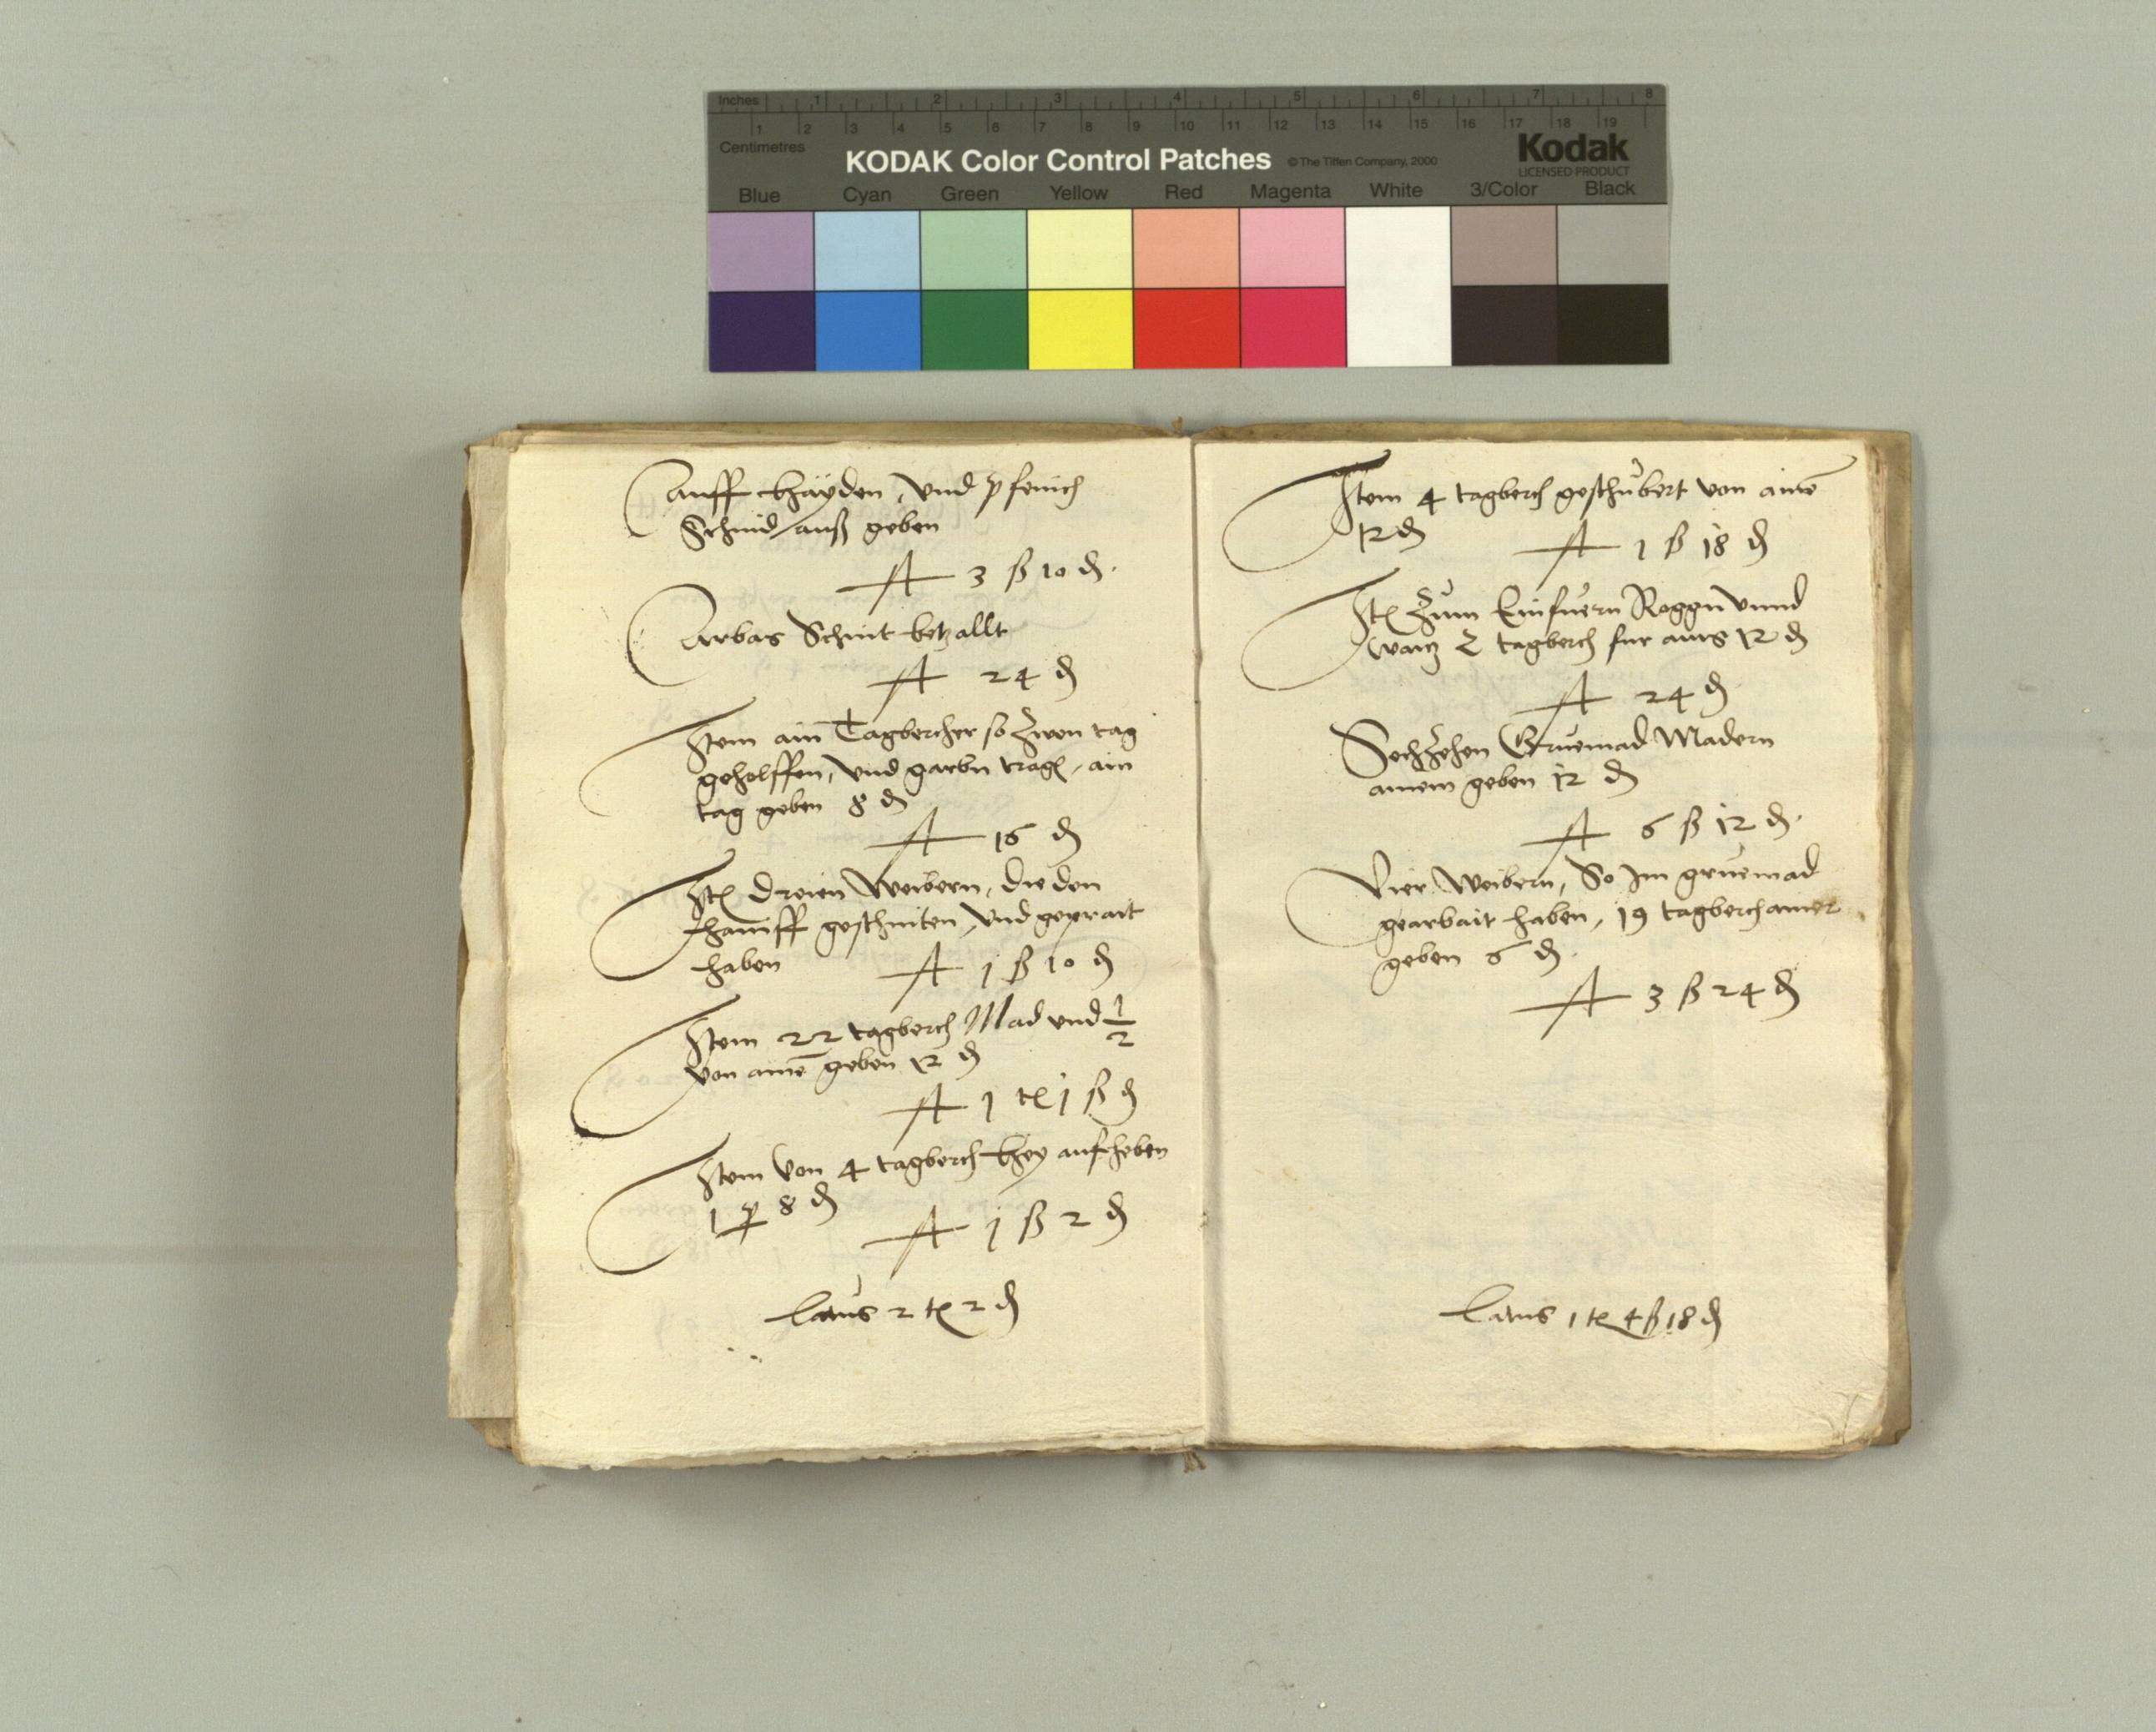 Inches 1 2 3 4 5 6 7 8
1 2 3 4 5 6 7 8 9 10 11 12 13 14 15 16 17 18 19
Centimetres
KODAK Color Control Patches © The Tiffen Company, 2000 Kodak
LICENSED PRODUCT
Blue Cyan Green Yellow Red Magenta White 3/Color Black
Auff häyden, Und pfenich
Schnid auß geben
A 3 ß 10 ₰.
Arbas Schnit betzallt
A 24 ₰
Item ain Tagbercher so Zwen tag
geholffen, Und garbn trag, ain
tag geben 8 ₰
A 16 ₰
Itē dreien Weibern, die den
haniff geschniten, Und geprait
haben A 1 ß 10 ₰
Item 22 tagberch Mad und 1/2
von ainē geben 12 ₰
A 1 tℓ 1 ß ₰
Item Von 4 tagberch hey aufheben
1 p 8 ₰ A 1 ß 2 ₰
Latus 2 tℓ 2 ₰
Item 4 tagberch geschübert von ainē
12 ₰ A 1 ß 18 ₰
Itē Zum Einfuern Roggn Unnd
waitz 2 tagberch fur ains 12 ₰
A 24 ₰
Sechzehen Gruemad Madern
ainem geben 12 ₰
A 6 ß 12 ₰.
Vier Weibern, So Im gruemad
gearbait haben, 19 tagberch ainer
geben 6 ₰.
A 3 ß 24 ₰
Latus 1 tℓ 4 ß 18 ₰